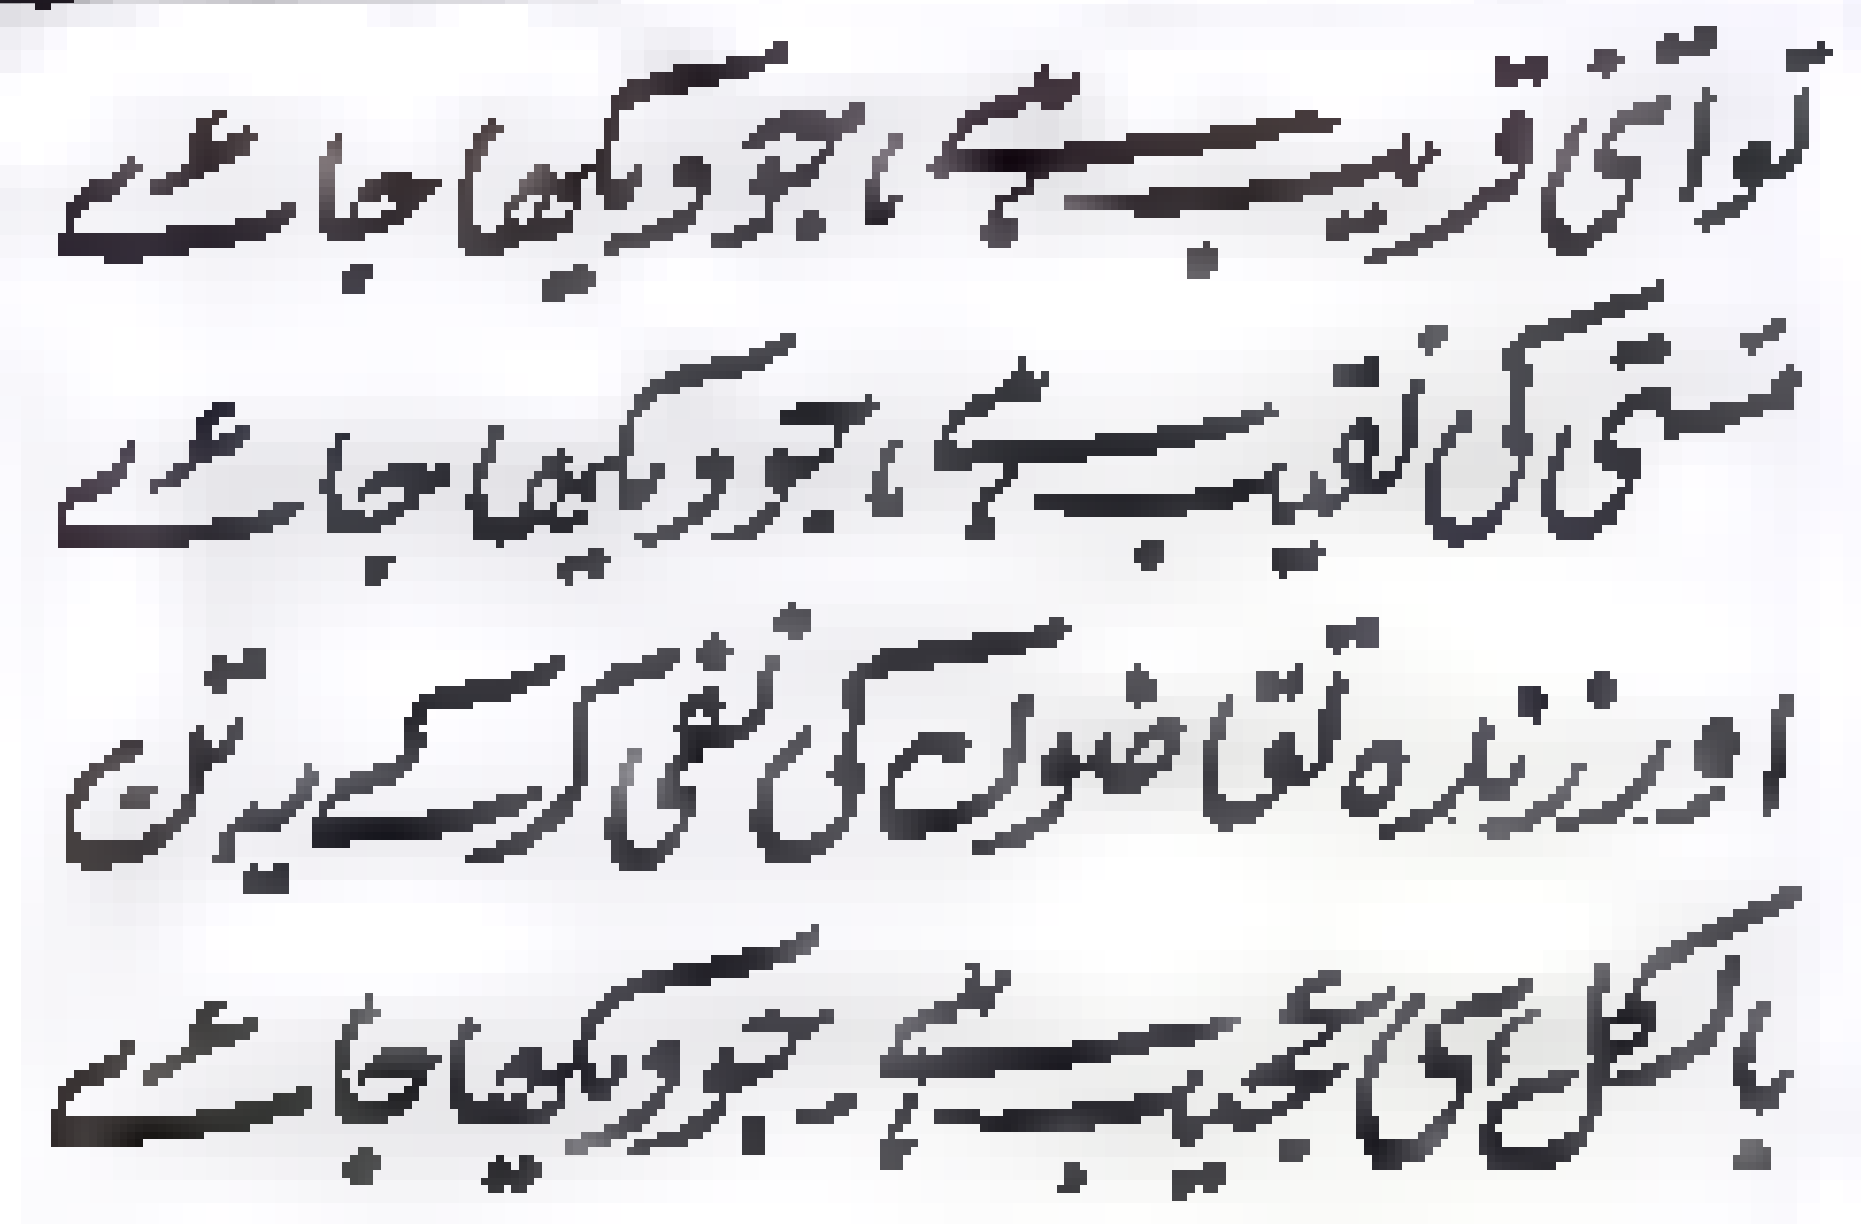 تو اتنی قریب ہے ، جو دیکھا جائے
تشنگی کی نقیب ہے ، جو دیکھا جائے
اور زندہ تقاضوں کی نفی کر کے یہ تن
بالکل ہی عجیب ہے - جو دیکھا جائے